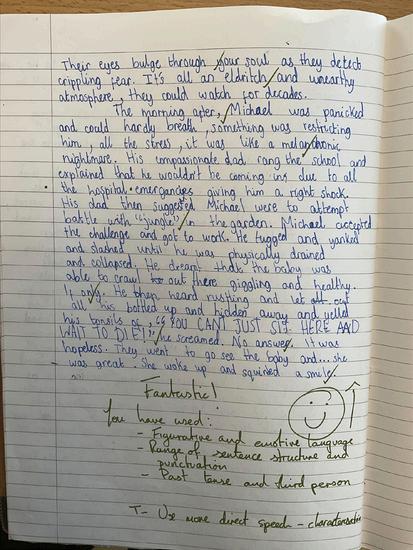 Their eyes bulge through your soul as they detect
crippling fear. It's all an eldritch and unearthy
atmosphere, they could watch for decades.
The morning after, Michael was panicked
and could hardy breath, something was restricting
him, all the stress, it was like a melanchronic
nightmare. His compassionate dad rang the school and
explained that he wouldn't be coming in due to all
the hospital emergancies giving him a right shock.
His dad then suggested Michael were to attempt
battle with "jungle" in the garden. Michael accepted
the challenge and got to work. He tugged and yanked
and slashed until he was physically drained
and collapsed. He dreamt that the baby was
able to crawl out there giggling and healthy.
He then heard rustling and let out
all his bottled up and hidden away and yelled
his tonsils of, "YOU CANT JUST SIT HERE AND
WAIT TO DIE!" he screamed. No answer. It was
hopeless. They went to go see the baby and... she
was great. She woke up and squinted a smile.
Fantastic!
You have used:
- Figurative and emotive language
- Range of sentence structure and
punctuation
- Past tense and third person
T- Use more direct speech - characterisation